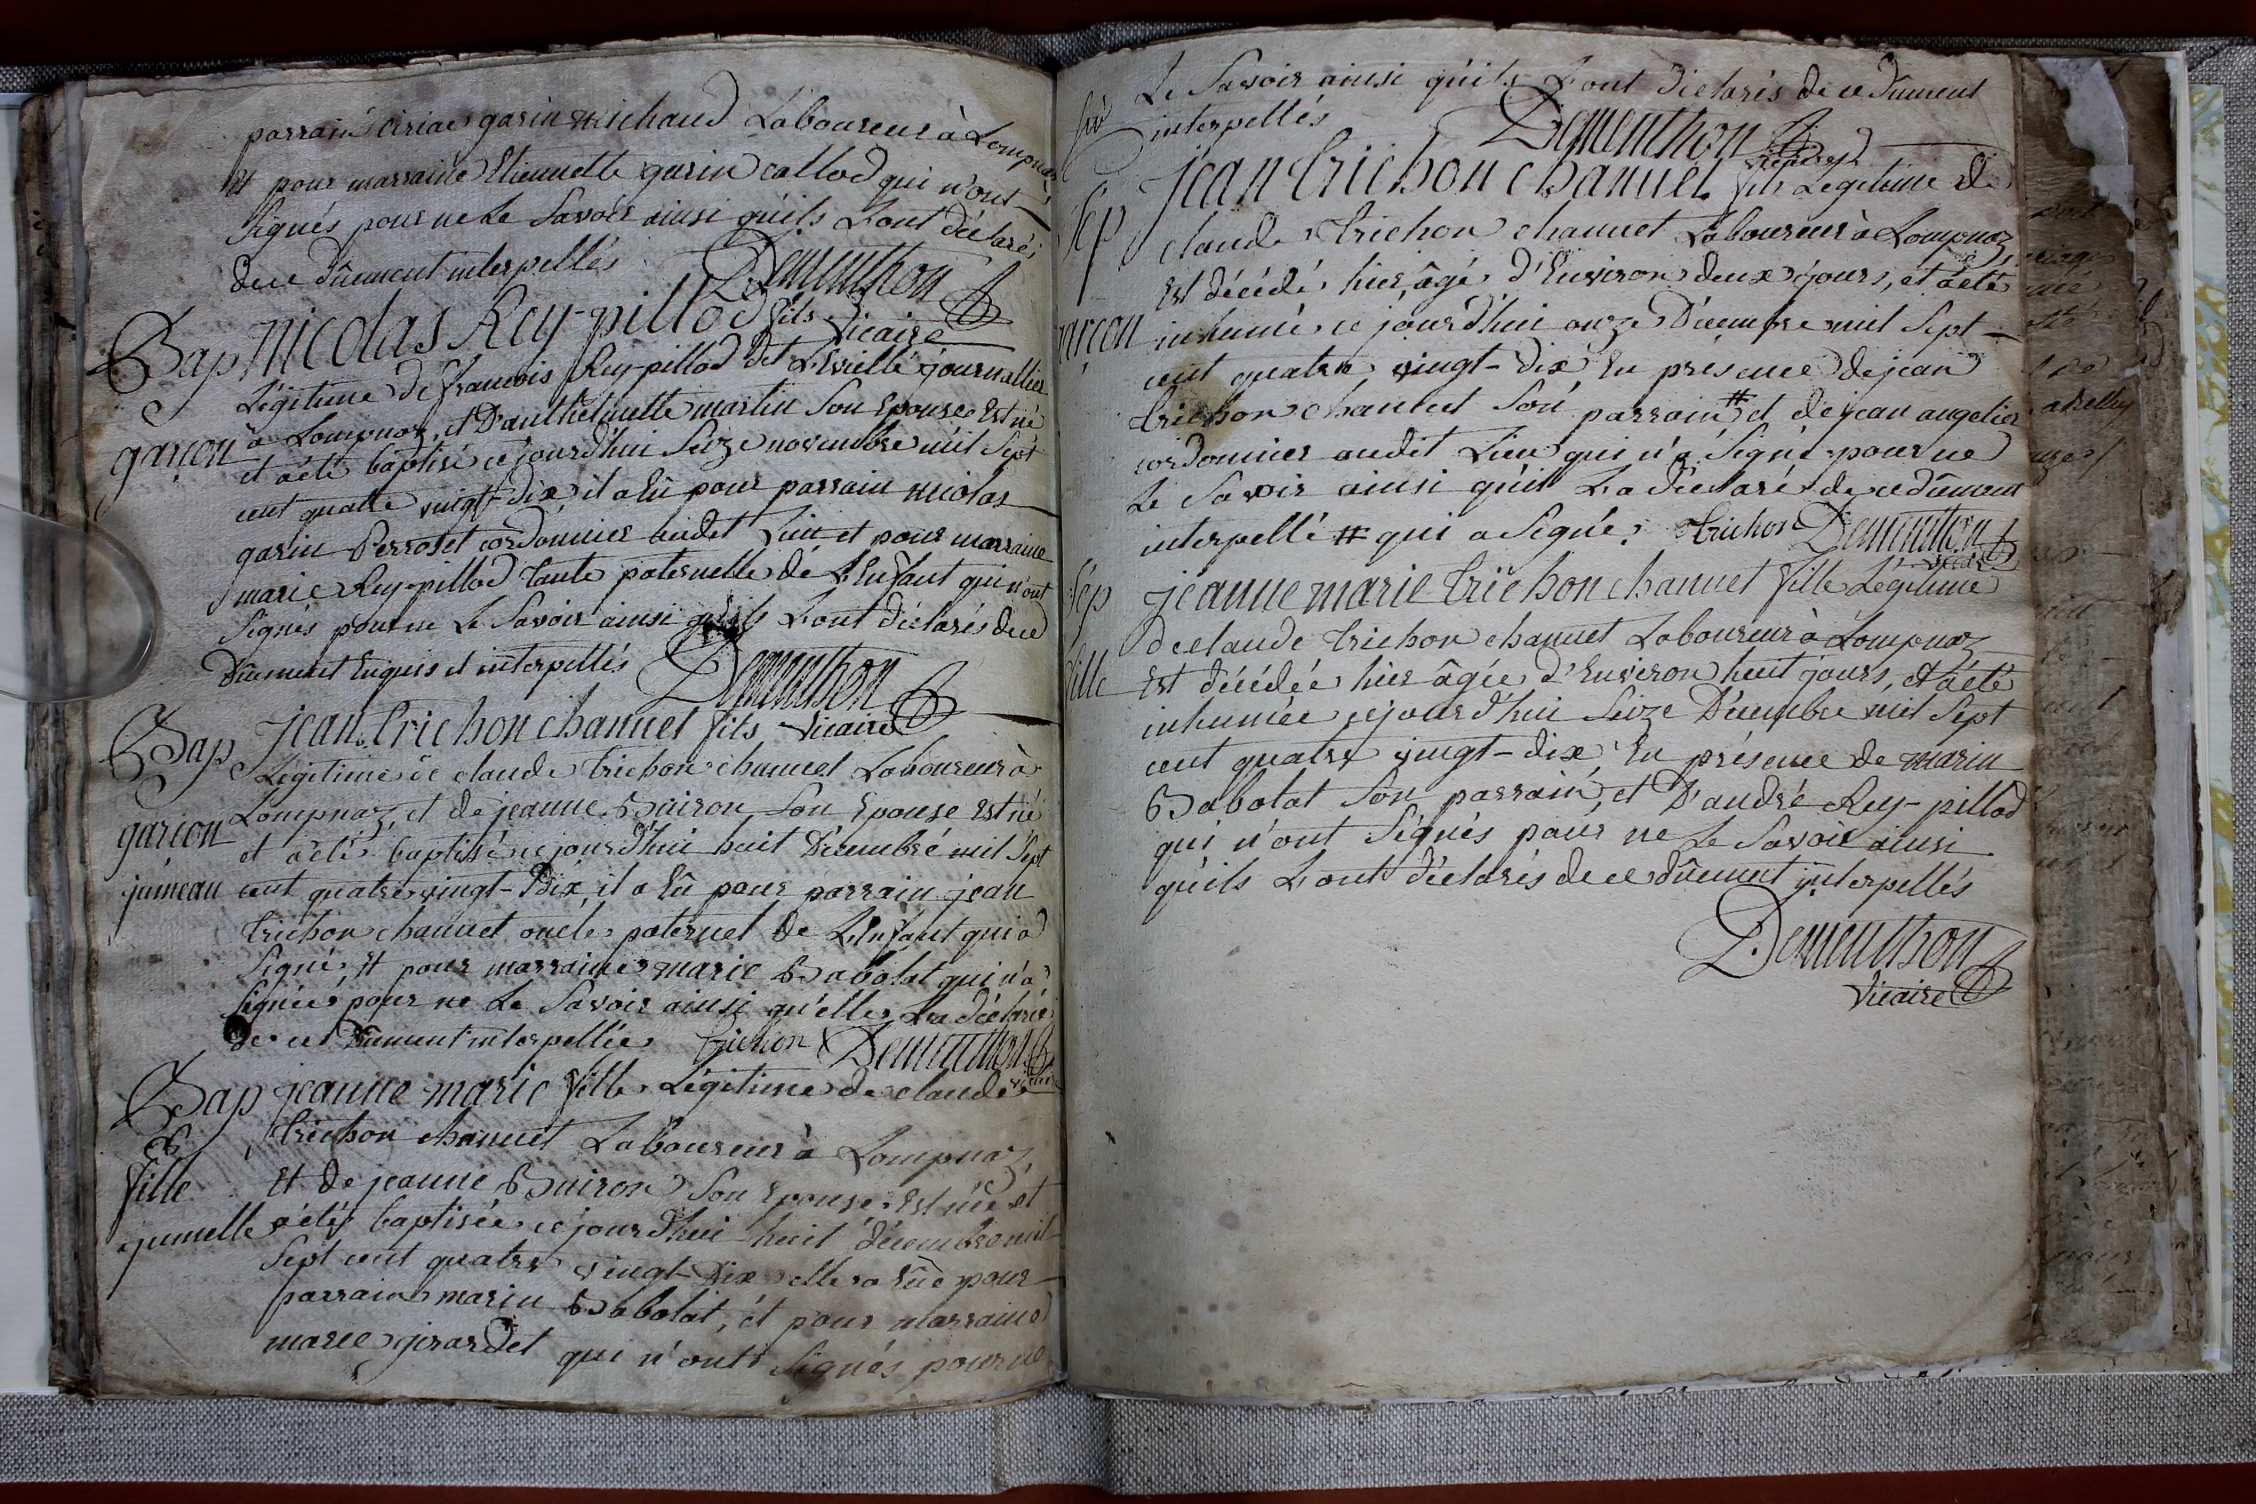 parrain ciriac garin michaud Laboureur à Lompnaz
Et pour marraine Etiennette garin callod qui n'ont
Signés pour ne Le Savoir ainsi qu'ils L'ont déclaré,
de ce dûement interpellés Dementhon
Vicaire
Bap
garçon
Nicolas Rey-pillod fils
Légitime de françois Rey-pillod dit Levieille journallier
à Lompnaz, et D'anthelmette martin Son Epouse Est né
et a été baptisé ce jourd'hui Seize novembre mil Sept
cent quatre vingt-dix il a Eû pour parrain nicolas
garin Perroset cordonnier audit Lieu et pour marraine
marie Rey-pillod tante paternelle de L'Enfant qui n'ont
Signés pour ne Le Savoir ainsi qu'ils L'ont déclarés de ce
Dûement Enquis et interpellés Dementhon
Vicaire
Bap
garçon
jumeau
jean trichon chanuet fils
Légitime de claude trichon chanuet Laboureur à
Lompnaz, et de jeanne Buiron Son Epouse Est né
et a été baptisé ce jourd'hui huit Décembre mil Sept
cent quatre vingt-Dix, il a Eû pour parrain jean
trichon chanuet oncle paternel de L'Enfant qui a
Signé, Et pour marraine marie Babolat qui n'a
Signée pour ne Le Savoir ainsi qu'elle L'a déclaré
de ce Dûment interpellée trichon Dementhon
vicaire
Bap
fille
jumelle
jeanne marie fille Légitime de claude
trichon chanuet Laboureur à Lompnaz,
Et de jeanne Buiron Son Epouse Est née et
a été baptisée ce jourd'hui huit décembre mil
Sept cent quatre vingt-Dix elle a Eûe pour
parrain marin Babolat, et pour marraine
marie girardet qui n'ont Signés pour ne
Le Savoir ainsi qu'ils L'ont déclarés de ce dument
interpellés Dementhon
Sep
garçon
jean trichon chanuet fils Légitime de
claude trichon chanuet Laboureur à Lompnaz,
Est décédé hier, âgé d'Environ deux jours, et a été
inhumé ce jourd'hui onze Décembre mil Sept
cent quatre vingt-dix En présence de jean
trichon chanuet Son parrain # et de jean angelier
cordonnier audit Lieu qui n'a Signé pour ne
Le Savoir ainsi qu'il L'a déclaré de ce dûment
interpellé # qui a Signé. trichon Dementhon
vicaire
Sép
fille
jeanne marie trichon chanuet fille Légitime
de claude trichon chanuet Laboureur à Lompnaz
Est décédée hier âgée d'Environ huit jours, et a été
inhumée ce jourd'hui Seize Décembre mil Sept
cent quatre vingt-dix En présence de marin
Babolat Son parrain, et D'andré Rey-pillod
qui n'ont Signés pour ne Le Savoir ainsi
qu'ils L'ont déclarés de ce dûement interpellés
Dementhon
Vicaire